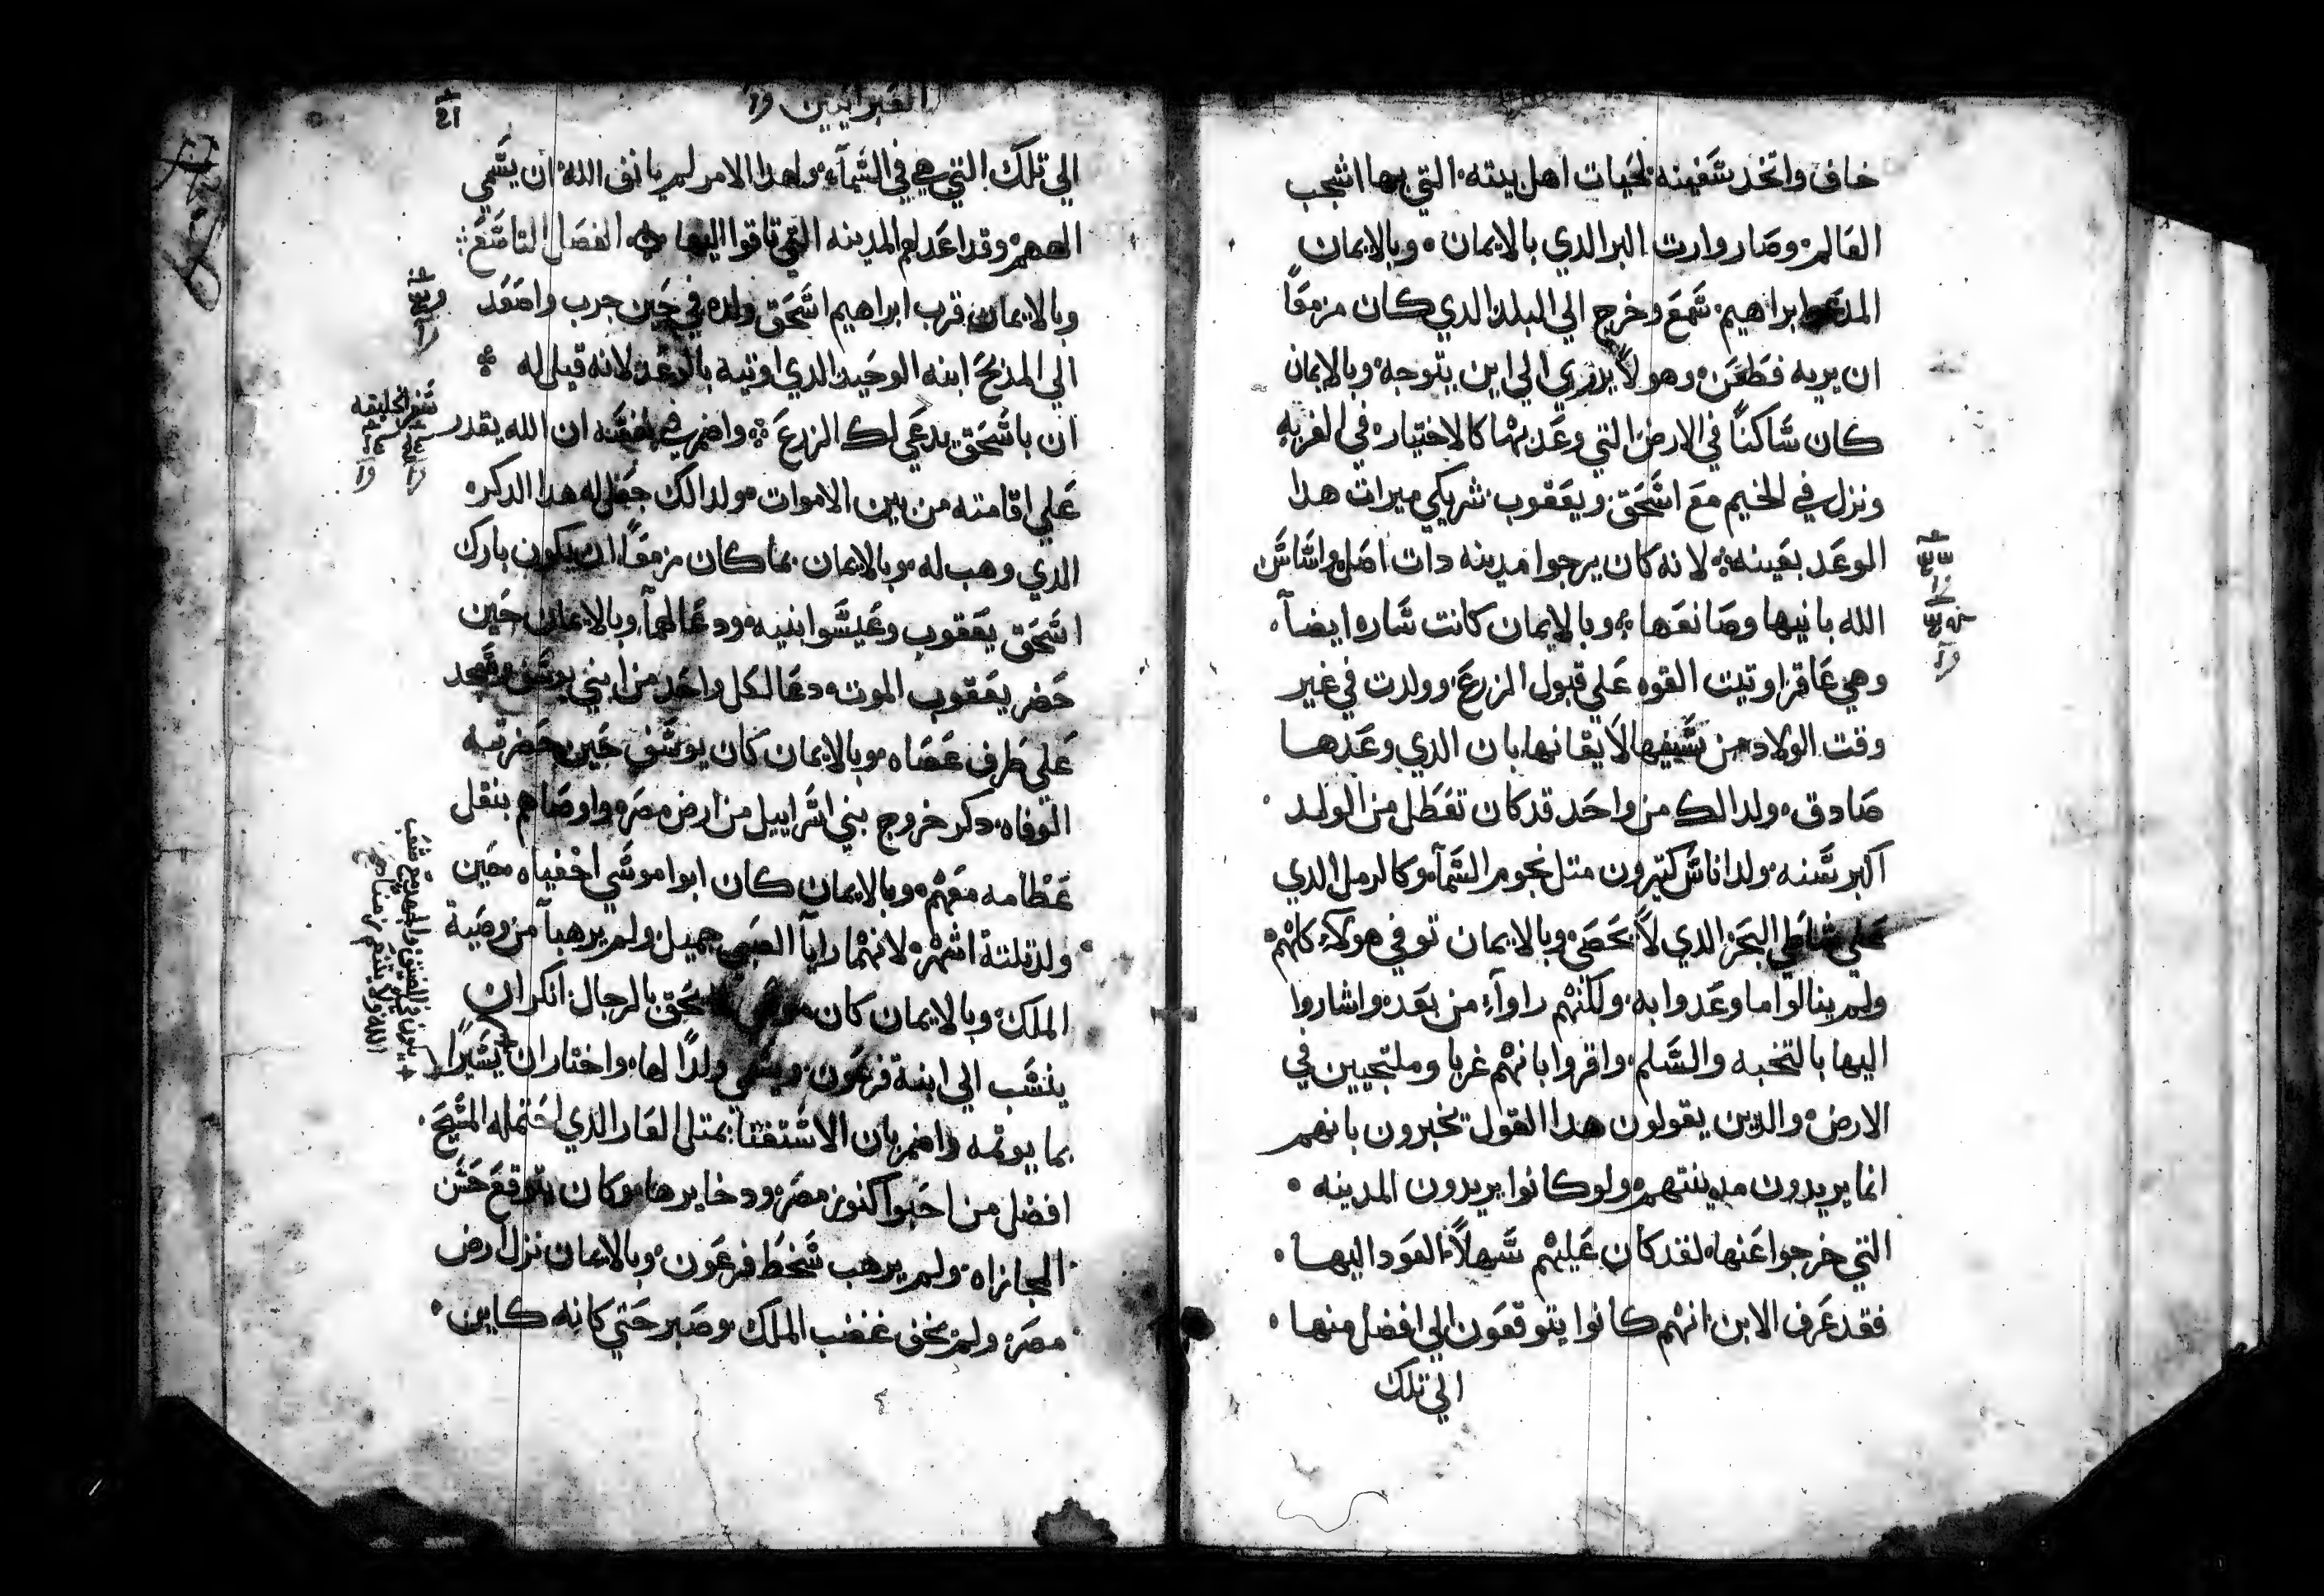 خاف واتخد سفينه لحيات اهل بيته التي بها اشجب
العالم وصار وارت البر الدي بالايمان وبالايمان
المدعو ابراهيم سمع وخرج الي البلد الدي كان مزمعاً
ان يريه فطعن وهو لا يدري الي اين يتوجه وبالايمان
كان ساكناً في الارض التي وعد بها كالاختيار في الغربه
ونزل في الخيم مع اسحق ويعقوب شريكي ميرات هدا
الموعد بعينه لانه كان يرجوا مدينه دات اصل واساس
الله بانيها وصانعها وبالايمان كانت ساره ايضاً
وهي عاقر اوتيت القوه علي قبول الزرع وولدت في غير
وقت الولاد من سنيها لايقانها بان الدي وعدها
صادق ولدالك من واحد قد كان تعطل من الولد
اكبر سنه ولد اناس كتيرون متل نجوم السمآ وكالرمل الدي
علي شاطي البحر الدي لا يحصي وبالايمان توفي هولاء كلهم
ولم ينالوا ما وعدوا به ولكنهم راوآء من بعد واشاروا
اليها بالتخبه والسلم واقروا بانهم غربا وملتجيين في
الارض والدين يقولون هدا القول يخبرون بانهم
انما يريدون مدينتهم ولو كانوا يريدون المدينه
التي خرجوا عنها لقد كان عليهم سهلاً العود اليها
فقد عرف الابن انهم كانوا يتوقعون الي افضل منها
الي تلك
العبرانيين
الي تلك التي هي في السمآء ولهدا الامر لم يانف الله ان يسمي
الههم وقد اعد لهم المدينه التي تاقوا اليها الفصل التاسع
وبالايمان قرب ابراهيم اسحق ولده في حين جرب واصعد
الي المدبح ابنه الوحيد الدي اوتيه بالوعد لانه قيل له
ان باسحق يدعي لك الزرع واضمر في نفسه ان الله يقدر
علي اقامته من بين الاموات ولدالك جعل له هدا الدكر
الدي وهب له وبالايمان بما كان مزمعاً ان يكون بارك
اسحق يعقوب وعيسوا ابنيه ودعا لهمآ وبالايمان حين
حضر يعقوب الموت دعا لكل واحد من ابني يوسف وسجد
علي طرف عصاه وبالايمان كان يوسف حين حضرته
الوفاه دكر خروج بني اسراييل من ارض مصر واوصاهم بنقل
عظامه معهم وبالايمان كان ابوا موسي اخفياه حين
ولد تلتة اشهر لانهما رايآ الصبي جميل ولم يرهبآ من وصية
الملك وبالايمان كان بالرجال انكر ان
ينسب الي ابنة فرعون ويسمي ولداً لها واختار ان يسيراً
بما يوتمه واضمر بان الاستغنا بمتل العار الدي احتمله المسيح
افضل من احتوا كنوز مصر ودخايرها وكان يتوقع حسن
المجازاه ولم يرهب سخط فرعون وبالايمان نزل ارض
مصر ولم يخف غضب الملك وصبر حتي كانه كاين
سفر الخليقه